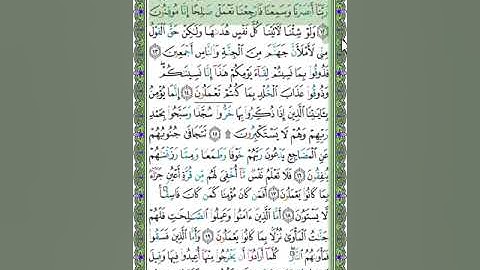 رَبَّنَا أَبْصَرْنَا وَسَمِعْنَا فَارْجِعْنَا نَعْمَلْ صَالِحًا إِنَّا مُوقِنُونَ
١٢ وَلَوْ شِئْنَا لَآتَيْنَا كُلَّ نَفْسٍ هُدَاهَا وَلَٰكِنْ حَقَّ الْقَوْلُ
مِنِّي لَأَمْلَأَنَّ جَهَنَّمَ مِنَ الْجِنَّةِ وَالنَّاسِ أَجْمَعِينَ ١٣
فَذُوقُوا بِمَا نَسِيتُمْ لِقَاءَ يَوْمِكُمْ هَٰذَا إِنَّا نَسِينَاكُمْ
وَذُوقُوا عَذَابَ الْخُلْدِ بِمَا كُنْتُمْ تَعْمَلُونَ ١٤ إِنَّمَا يُؤْمِنُ
بِآيَاتِنَا الَّذِينَ إِذَا ذُكِّرُوا بِهَا خَرُّوا سُجَّدًا وَسَبَّحُوا بِحَمْدِ
رَبِّهِمْ وَهُمْ لَا يَسْتَكْبِرُونَ ۩ ١٥ تَتَجَافَىٰ جُنُوبُهُمْ
عَنِ الْمَضَاجِعِ يَدْعُونَ رَبَّهُمْ خَوْفًا وَطَمَعًا وَمِمَّا رَزَقْنَاهُمْ
يُنْفِقُونَ ١٦ فَلَا تَعْلَمُ نَفْسٌ مَا أُخْفِيَ لَهُمْ مِنْ قُرَّةِ أَعْيُنٍ جَزَاءً
بِمَا كَانُوا يَعْمَلُونَ ١٧ أَفَمَنْ كَانَ مُؤْمِنًا كَمَنْ كَانَ فَاسِقًا
لَا يَسْتَوُونَ ١٨ أَمَّا الَّذِينَ آمَنُوا وَعَمِلُوا الصَّالِحَاتِ فَلَهُمْ
جَنَّاتُ الْمَأْوَىٰ نُزُلًا بِمَا كَانُوا يَعْمَلُونَ ١٩ وَأَمَّا الَّذِينَ فَسَقُوا
فَمَأْوَاهُمُ النَّارُ كُلَّمَا أَرَادُوا أَنْ يَخْرُجُوا مِنْهَا أُعِيدُوا فِيهَا وَقِيلَ